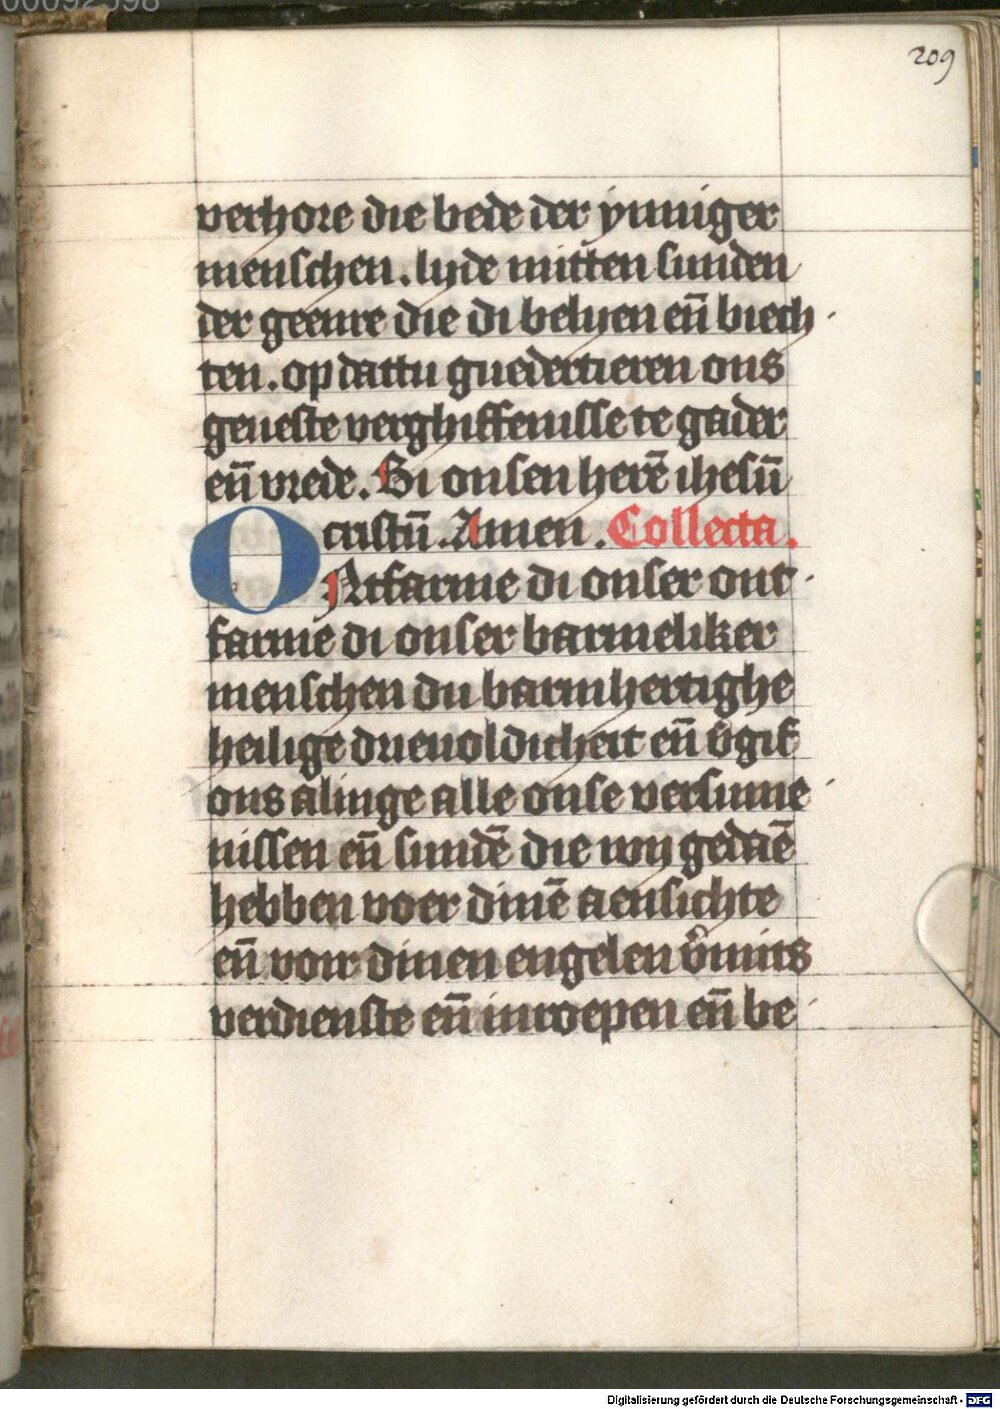 00092598
209
verhore die bede der ynniger
menschen. lyde mitten sunden
der geenre die di belyen eñ biech
ten. op dattu guedertieren ons
geueste verghiffenisse te gader
eñ vrede. Bi onsen herē ihesū
cristū. Amen. Collecta.
ONtfarme di onser ont
farme di onser barmeliker
menschen du barmhertighe
heilige drieuoldicheit eñ v̄gif
ons alinge alle onse versume
nissen eñ sundē die wy gedaē
hebben voer dinē aensichte
eñ voir dinen engelen v̄mits
verdienste eñ inroepen eñ be
Digitalisierung gefördert durch die Deutsche Forschungsgemeinschaft - DFG